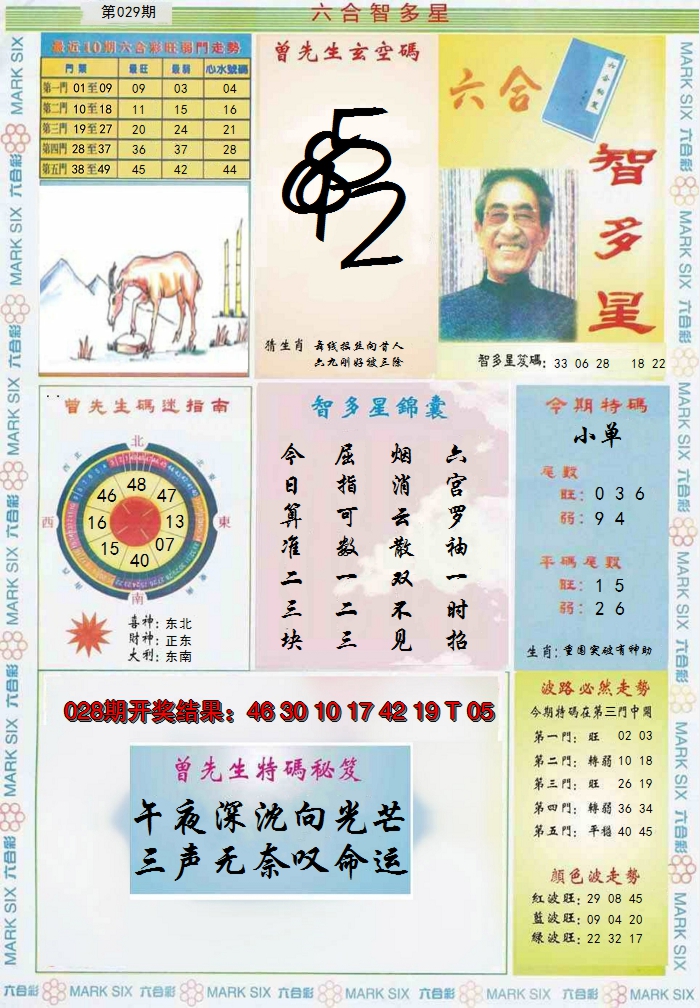 第029期
六合智多星
最近10期六合彩旺弱門走勢
門類 最旺 最弱 心水號碼
第一門 01至09 09 03 04
第二門 10至18 11 15 16
第三門 19至27 20 24 21
第四門 28至37 36 37 28
第五門 38至49 45 42 44
曾先生玄空碼
猜生肖 舞线招丝向昔人
六九刚好被三除
六合
智多星
智多星笈碼: 33 06 28 18 22
曾先生碼迷指南
北
西北
東北
西
東
西南
東南
南
46 48 47
16 13
15 07
40
喜神: 东北
財神: 正东
大利: 东南
智多星錦囊
六宫罗袖一时招
烟消云散双不见
屈指可数一二三
今日算准二三块
今期特碼
小单
尾数
旺: 0 3 6
弱: 9 4
平碼尾数
旺: 1 5
弱: 2 6
生肖: 重围突破有神助
028期开奖结果: 46 30 10 17 42 19 T 05
曾先生特碼秘笈
午夜深沈向光芒
三声无奈叹命运
波路必然走勢
今期特碼在第三門中開
第一門: 旺 02 03
第二門: 轉弱 10 18
第三門: 旺 26 19
第四門: 轉弱 36 34
第五門: 平穩 40 45
顔色波走勢
紅波旺: 29 08 45
藍波旺: 09 04 20
綠波旺: 22 32 17
六合彩 MARK SIX 六合彩 MARK SIX 六合彩 MARK SIX 六合彩 MARK SIX 六合彩 MARK SIX